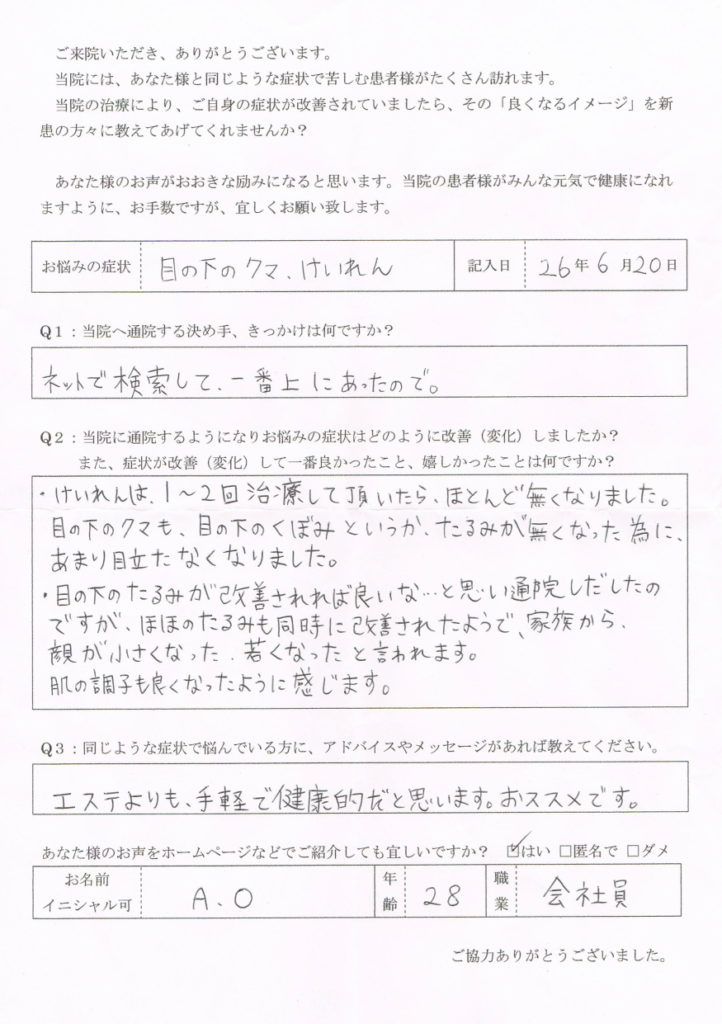 ご来院いただき、ありがとうございます。
当院には、あなた様と同じような症状で苦しむ患者様がたくさん訪れます。
当院の治療により、ご自身の症状が改善されていましたら、その「良くなるイメージ」を新
患の方々に教えてあげてくれませんか？
あなた様のお声がおおきな励みになると思います。当院の患者様がみんな元気で健康になれ
ますように、お手数ですが、宜しくお願い致します。
お悩みの症状 目の下のクマ、けいれん 記入日 26年6月20日
Q1：当院へ通院する決め手、きっかけは何ですか？
ネットで検索して、一番上にあったので。
Q2：当院に通院するようになりお悩みの症状はどのように改善（変化）しましたか？
また、症状が改善（変化）して一番良かったこと、嬉しかったことは何ですか？
・けいれんは、1～2回治療して頂いたら、ほとんど無くなりました。
目の下のクマも、目の下のくぼみというか、たるみが無くなった為に、
あまり目立たなくなりました。
・目の下のたるみが改善されれば良いな…と思い通院しだしたの
ですが、ほほのたるみも同時に改善されたようで、家族から、
顔が小さくなった、若くなったと言われます。
肌の調子も良くなったように感じます。
Q3：同じような症状で悩んでいる方に、アドバイスやメッセージがあれば教えてください。
エステよりも、手軽で健康的だと思います。おススメです。
あなた様のお声をホームページなどでご紹介しても宜しいですか？ ☑はい □匿名で □ダメ
お名前 イニシャル可 A.O 年齢 28 職業 会社員
ご協力ありがとうございました。